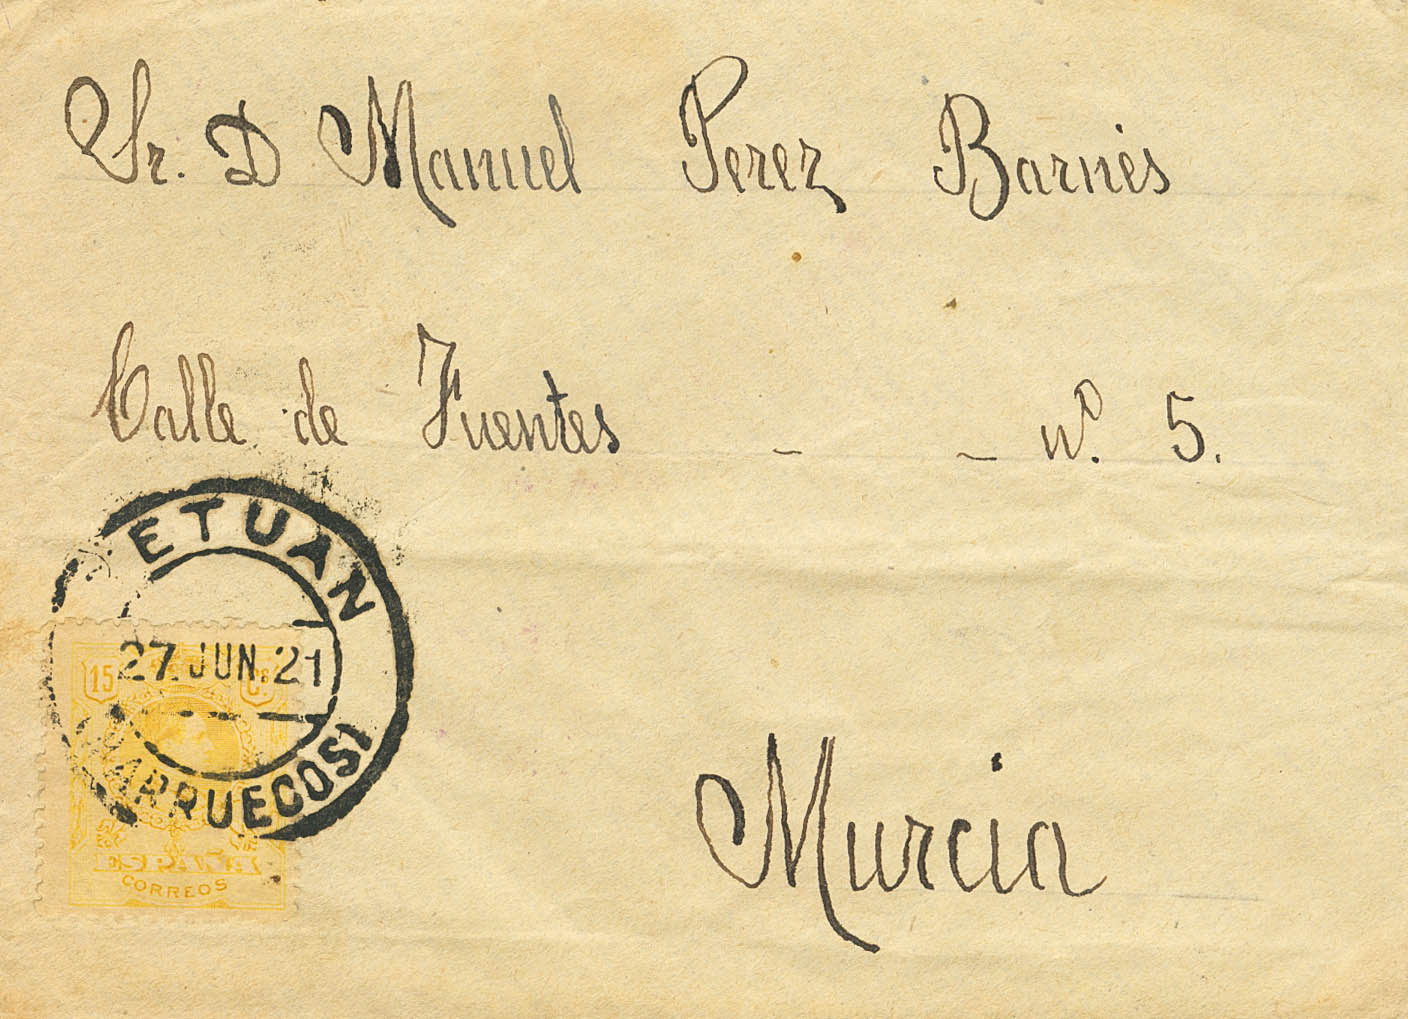 Sr. D Manuel Perez Barnés
Calle de Fuentes - - nº. 5.
ETUAN
27 JUN. 21
ARRUECOS)
15 Cs
Murcia
ESPAÑA
CORREOS